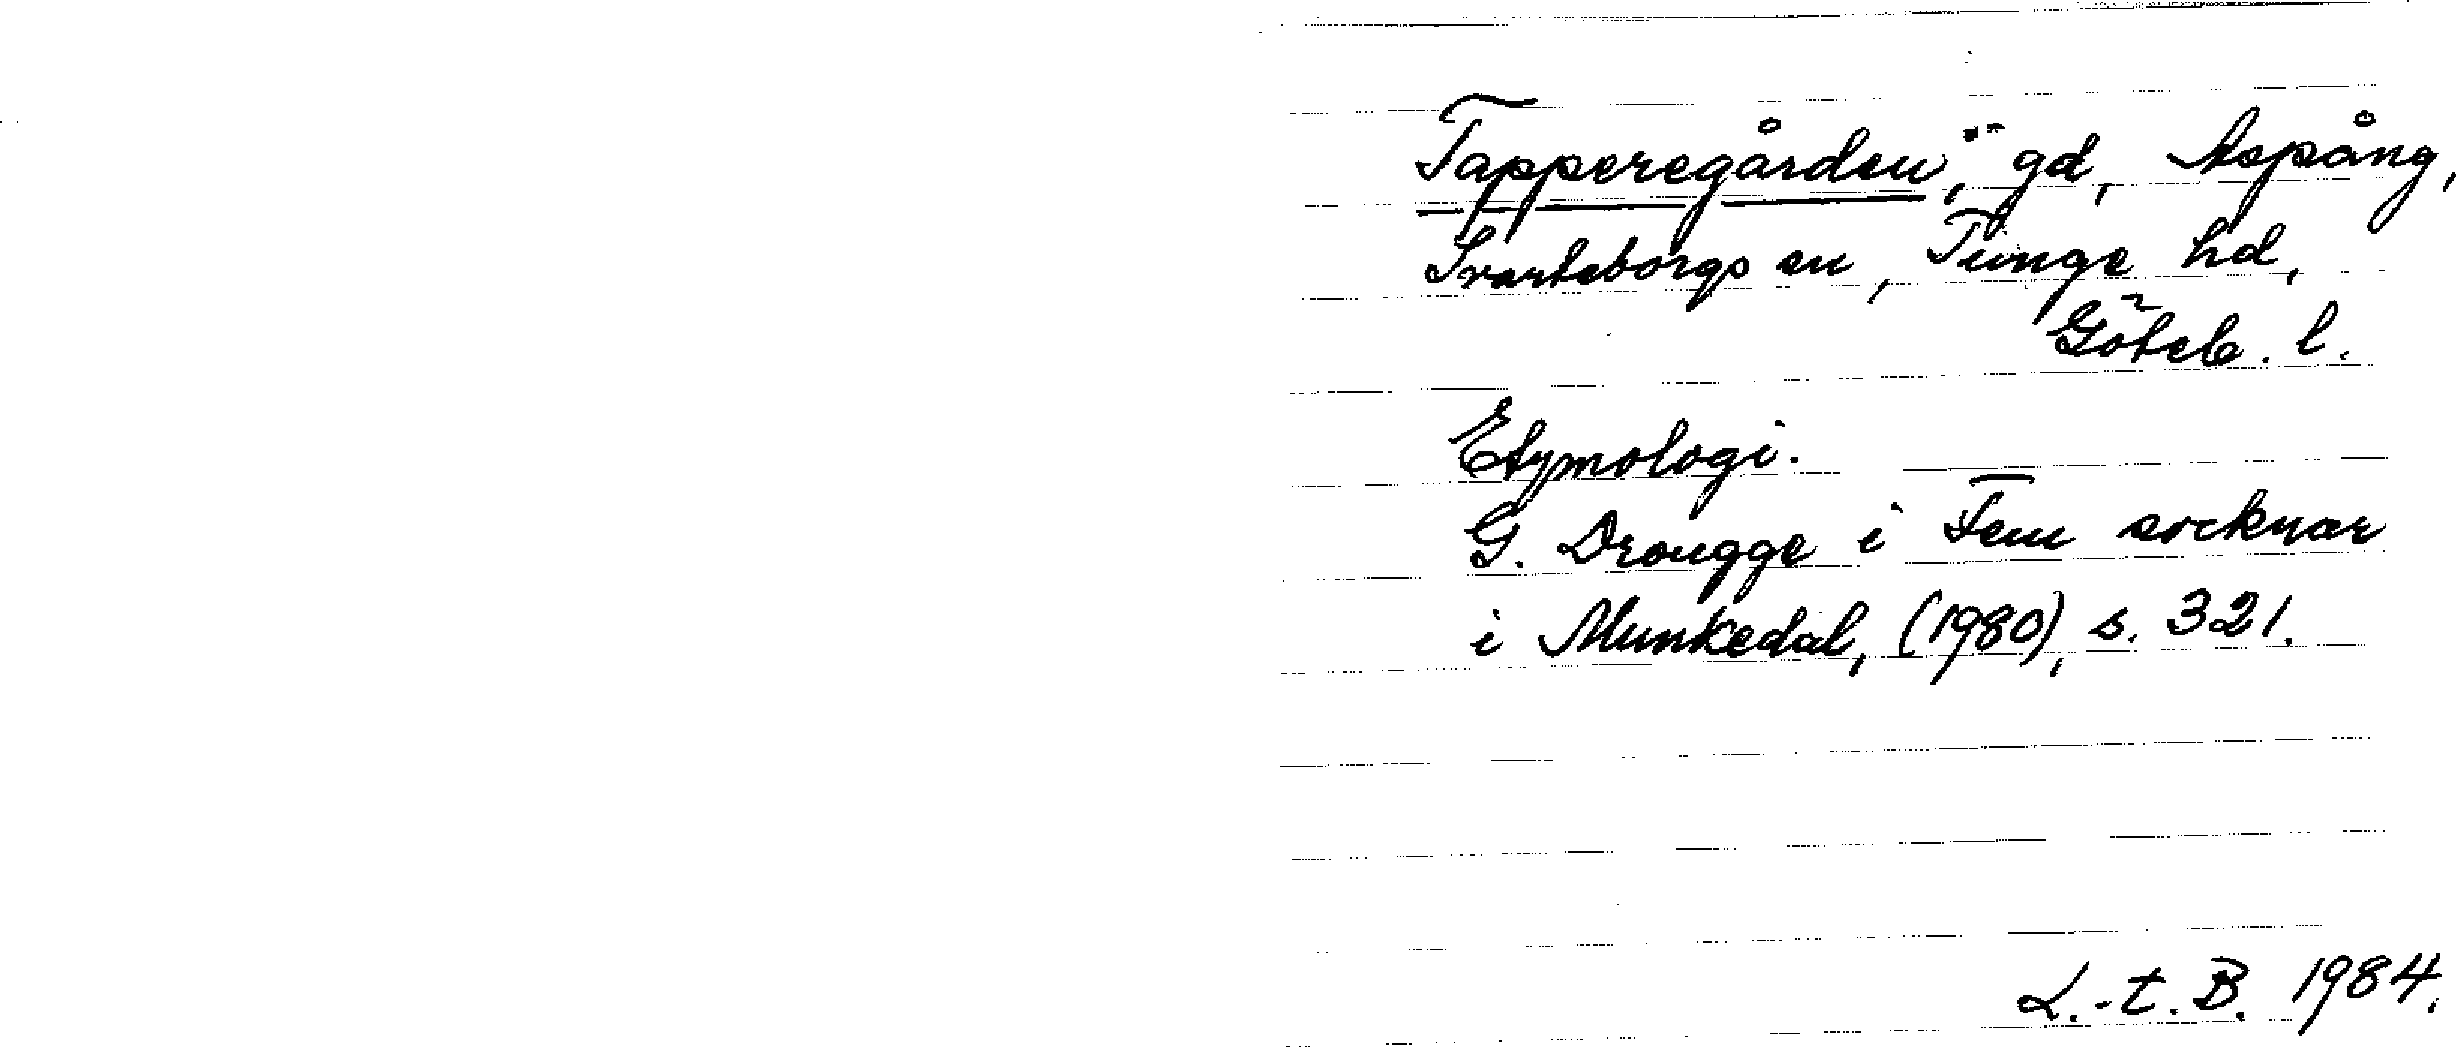 Tapperegården", gd, Aspång,
Svarteborgs sn, Tunge hd,
Göteb. l.
Etymologi.
G. Drougge i Fem socknar
i Munkedal, (1980), s. 321.
L.-t. B. 1984.